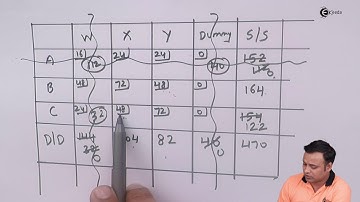 W X Y Dummy S/S
A 16 112 24 24 0 40 152 40 0
B 48 72 48 0 164
C 24 32 48 72 0 154 122
D/D 144 32 0 04 82 40 0 470